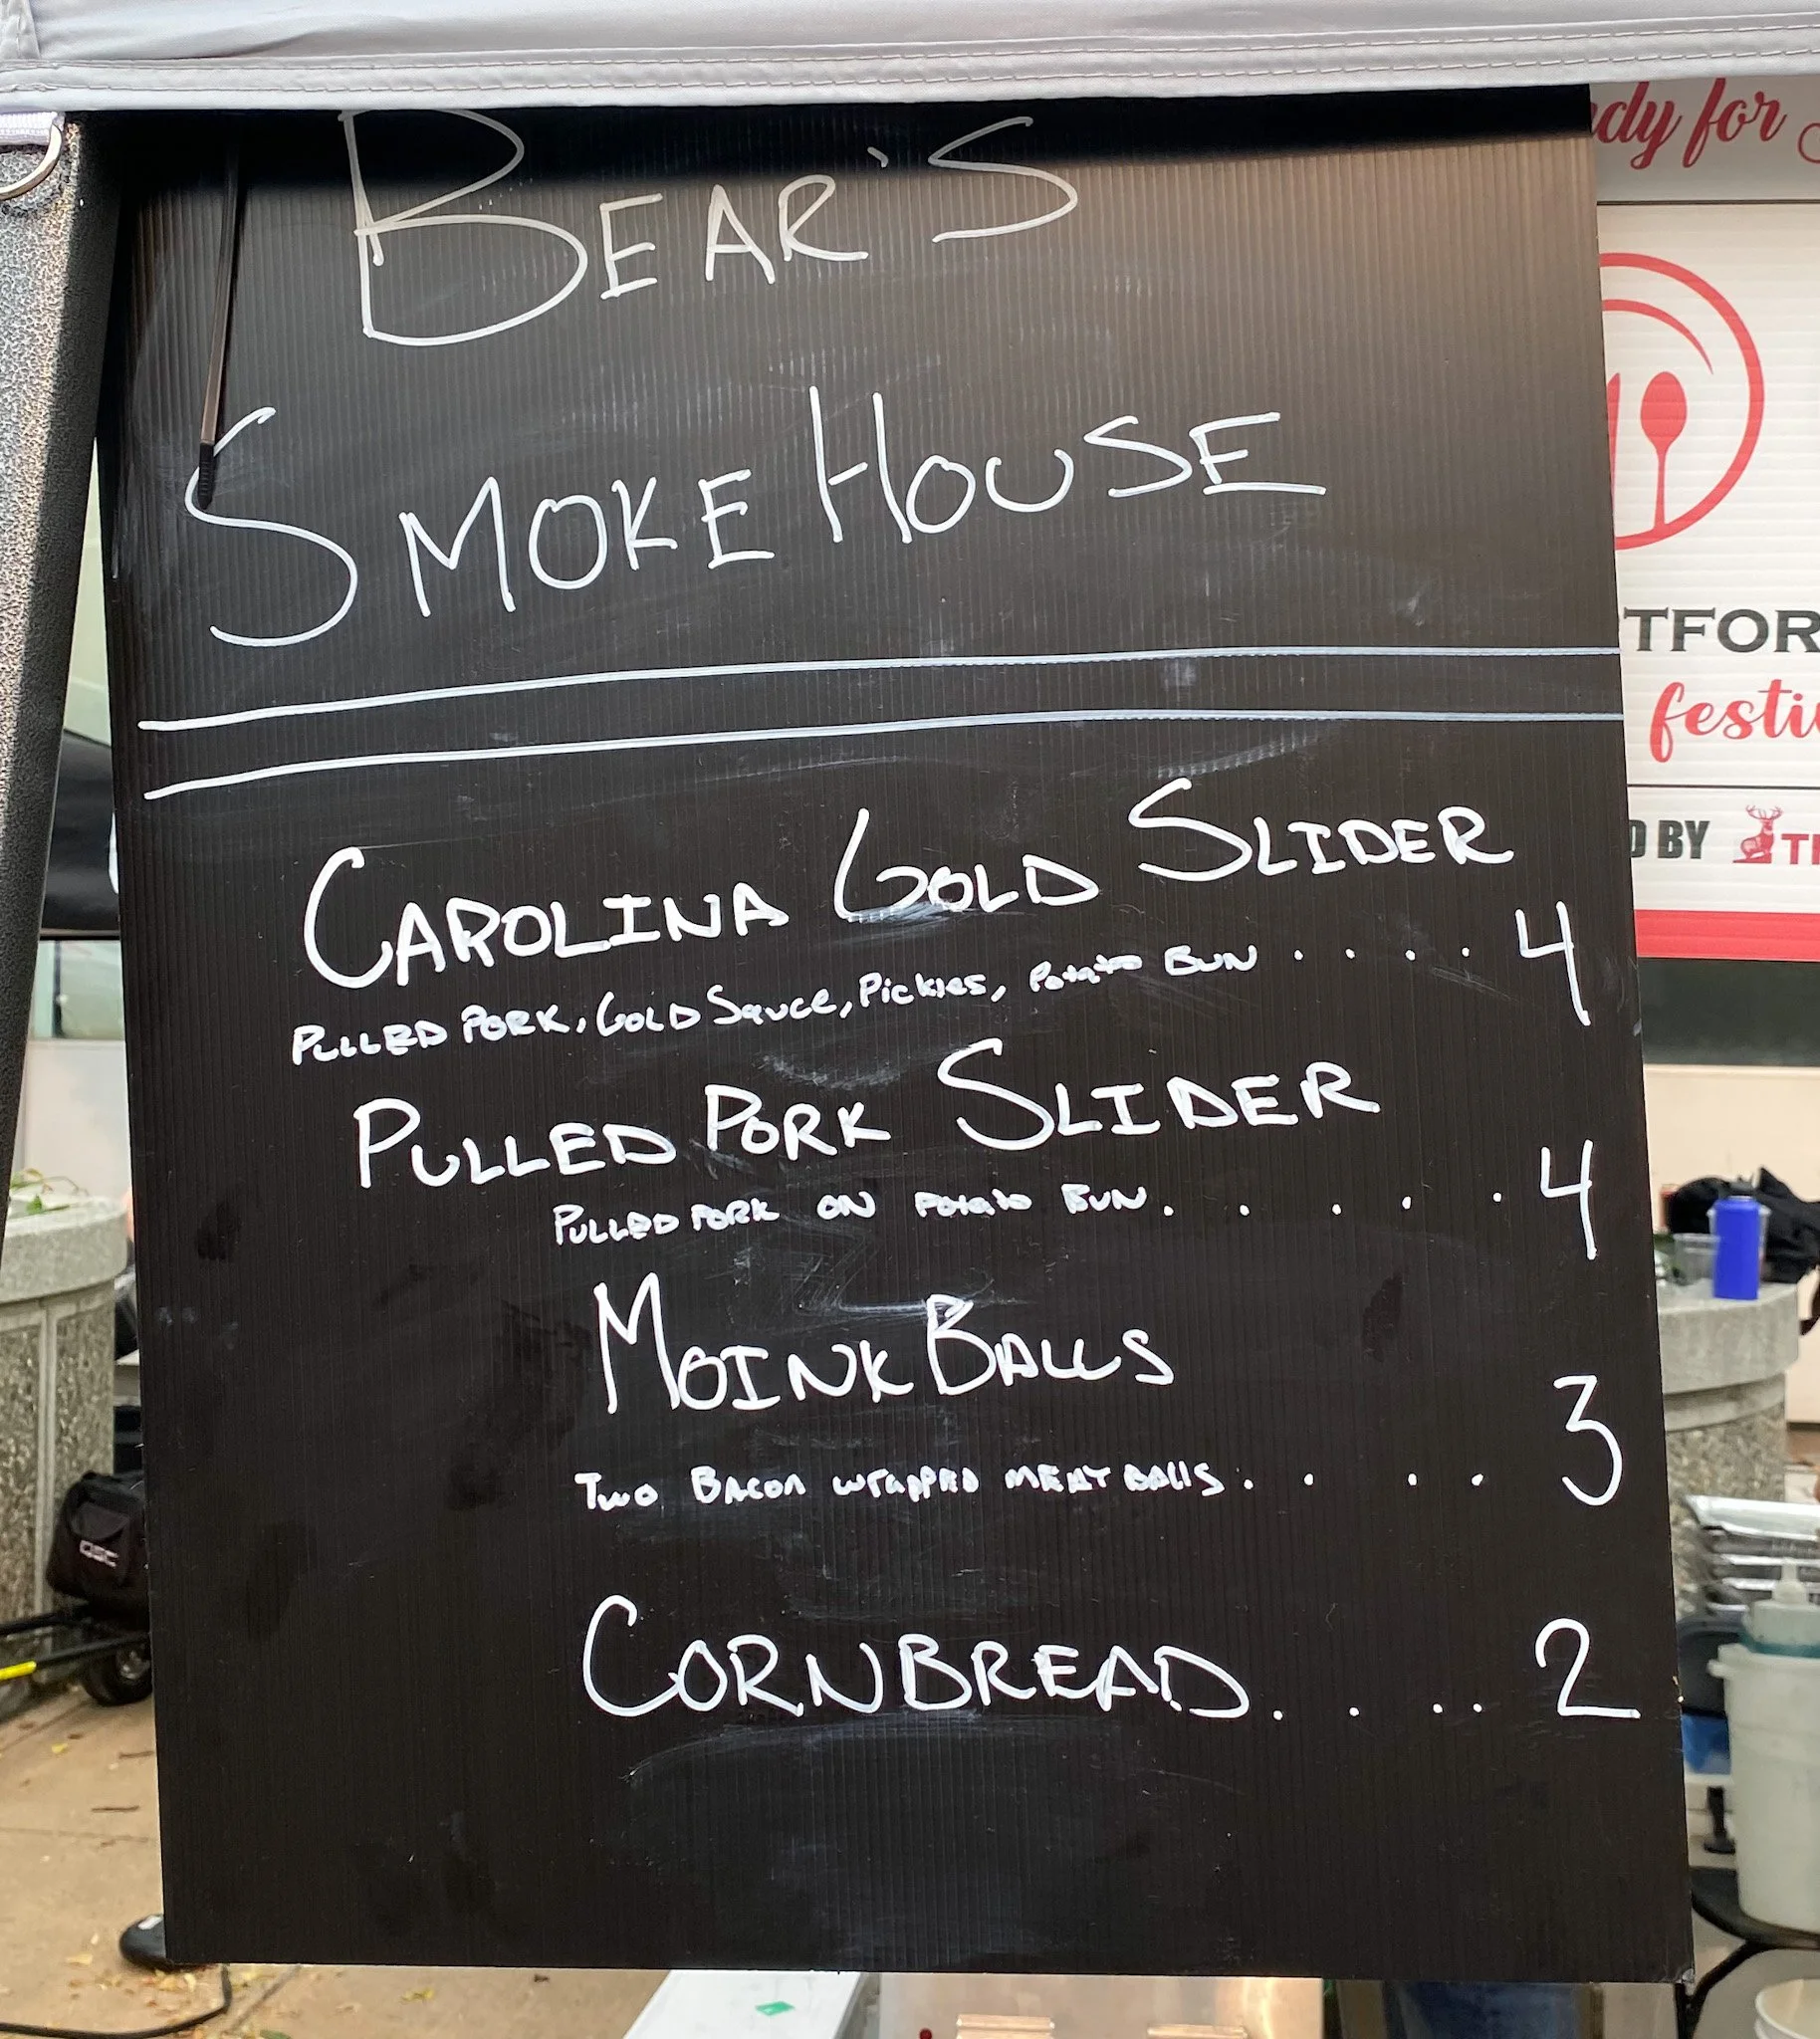 BEAR'S
SMOKEHOUSE
CAROLINA GOLD SLIDER
PULLED PORK, GOLD Sauce, Pickles, Potato BUN . . . . 4
PULLED PORK SLIDER
PULLED PORK ON Potato BUN . . . . . 4
MOINK BALLS
TWO BACON WRAPPED MEAT BALLS . . . . 3
CORNBREAD . . . . 2
dy for
TFOR
festi
D BY
QSC